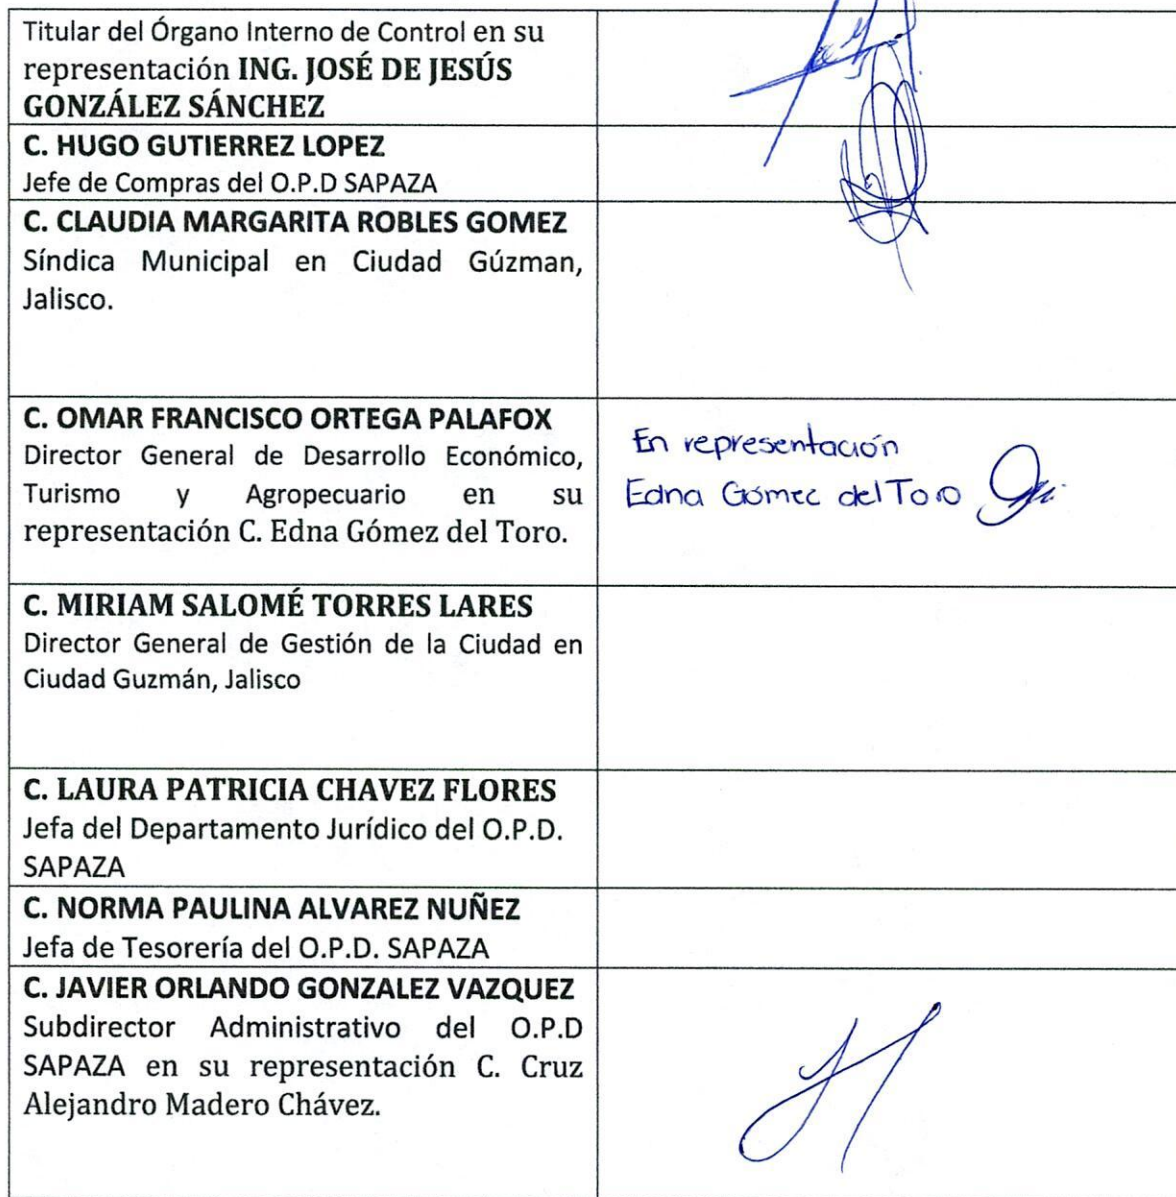 Titular del Órgano Interno de Control en su
representación ING. JOSÉ DE JESÚS
GONZÁLEZ SÁNCHEZ
C. HUGO GUTIERREZ LOPEZ
Jefe de Compras del O.P.D SAPAZA
C. CLAUDIA MARGARITA ROBLES GOMEZ
Síndica Municipal en Ciudad Gúzman,
Jalisco.
C. OMAR FRANCISCO ORTEGA PALAFOX
Director General de Desarrollo Económico,
Turismo y Agropecuario en su
representación C. Edna Gómez del Toro.
En representación
Edna Gómez del Toro
C. MIRIAM SALOMÉ TORRES LARES
Director General de Gestión de la Ciudad en
Ciudad Guzmán, Jalisco
C. LAURA PATRICIA CHAVEZ FLORES
Jefa del Departamento Jurídico del O.P.D.
SAPAZA
C. NORMA PAULINA ALVAREZ NUÑEZ
Jefa de Tesorería del O.P.D. SAPAZA
C. JAVIER ORLANDO GONZALEZ VAZQUEZ
Subdirector Administrativo del O.P.D
SAPAZA en su representación C. Cruz
Alejandro Madero Chávez.